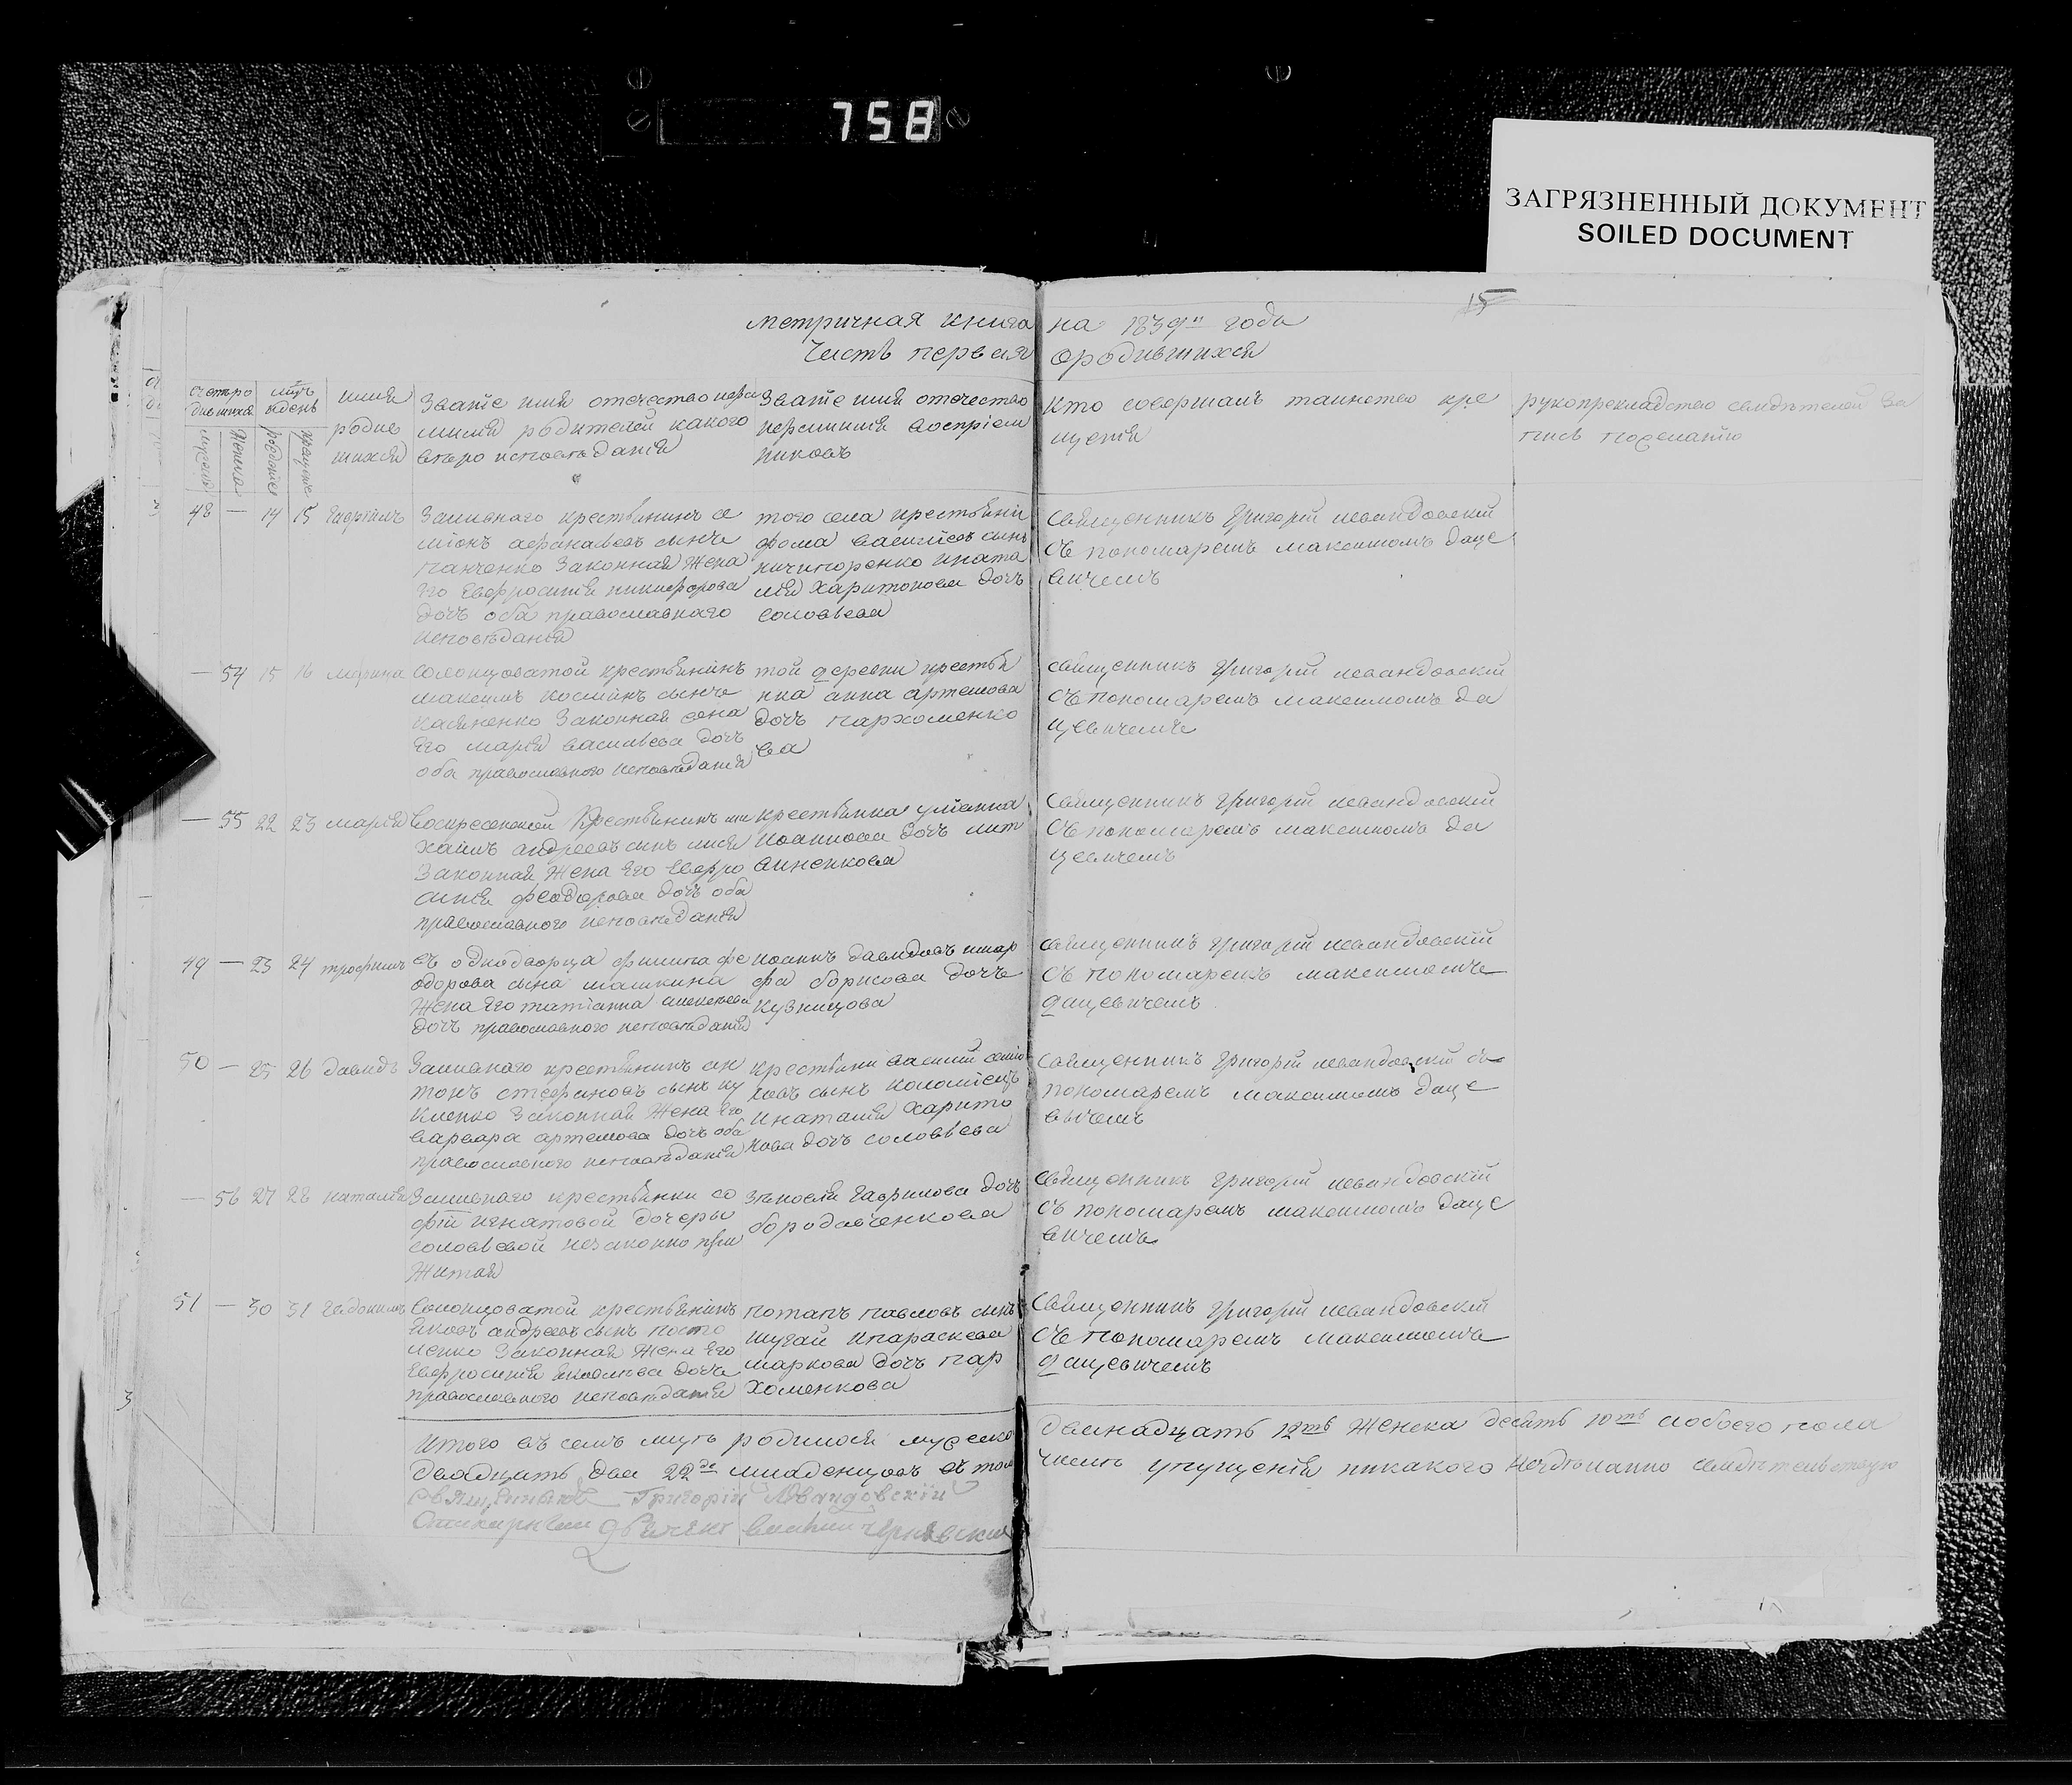 758
ЗАГРЯЗНЕННЫЙ ДОКУМЕНТ
SOILED DOCUMENT
15
Метричная книга на 1839й года
Часть первая ородившихся
счетъ ро
дившихся
мужеска
Женска
мцъ
идень
рождение
крещение
имия
родив
шихся
Званіе имя отечество ифа
милия родителей какого
въро исповъданія
Званіе имя отечество
ифамилия воспріем
никовъ
Кто совершалъ таинство кре
щенія
рукоприкладство свидътелей за
пись пожеланію
48 — 14 15 Гавріилъ
Заишнаго крестьянинъ се
міонъ афанасьевъ сынъ
панченко Законная Жена
Его Евфросинія никифорова
дочь оба православнаго
исповъданія
того села крестьяніи
фома василіевъ сынъ
ничипоренко ината
лия Харитонова дочь
соловьева
Священникъ Григорій левандовскій
съ пономаремъ максимомъ даце
вичемъ
— 54 15 16 Марина
Солонцоватой крестьянинъ
максимъ косминъ сынъ
касяненко Законная жена
Его марія василіева дочь
оба православного исповъданія
той деревни крестья
нка анна артемова
дочь пархоменко
ва
священникъ Григорій левандовскій
съ пономаремъ максимомъ да
цевичемъ
— 55 22 23 марія
Воскресенской Крестьянинъ ми
хаилъ андреевъ сынъ лися
Законная Жена Его Евфро
синія феодорова дочь оба
православного исповъданія
крестьянка уліанна
Иоаннова дочь лит
виненкова
Священникъ Григорій левандовскій
съ пономаремъ максимомъ да
цевичемъ
49 — 23 24 трофимъ
съ однодворца филипа фе
одорова сына машкина
Жена Его татіанна алексъева
дочь православного исповъданія
иоаннъ давидовъ имар
фа борисова дочь
кузнецова
священникъ Григорій левандовскій
съ пономаремъ максимомъ
дацевичемъ
50 — 25 26 давидъ
Заишнаго крестьянинъ ан
тонъ стефановъ сынъ ку
клепко Законная Жена Его
варвара артемова дочь оба
православного исповъданія
Крестьяни василій семіо
новъ сынъ коломіецъ
инаталия Харито
нова дочь соловьева
Священникъ Григорій левандовскій съ
пономаремъ максимомъ даце
вичемъ
— 56 27 28 наталія
Заишнаго крестьянки со
фіи игнатовой дочеры
соловьевой незаконно при
житая
Зъновія Гаврилова дочь
бородавченкова
Священникъ Григорій левандовскій
съ пономаремъ максимомъ даце
вичемъ
51 — 30 31 Евдокимъ
Солонцоватой крестьянинъ
яковъ андреевъ сынъ посто
ленко Законная Жена Его
Евфросинія яковлева дочь
православного исповъданія
потапъ павловъ сынъ
шугай ипараскева
маркова дочь пар
хоменкова
Священникъ Григорій левандовскій
съ пономаремъ максимомъ
дацевичемъ
Итого въ семъ мцъ родилося мужеско двенадцать 12ть Женска десять 10ть иобоего пола
двадцать два 22де младенцовъ въ том числъ упущенія никакого свидътельствую
Священникъ Григорій Левандовскій
василий чернявский
3